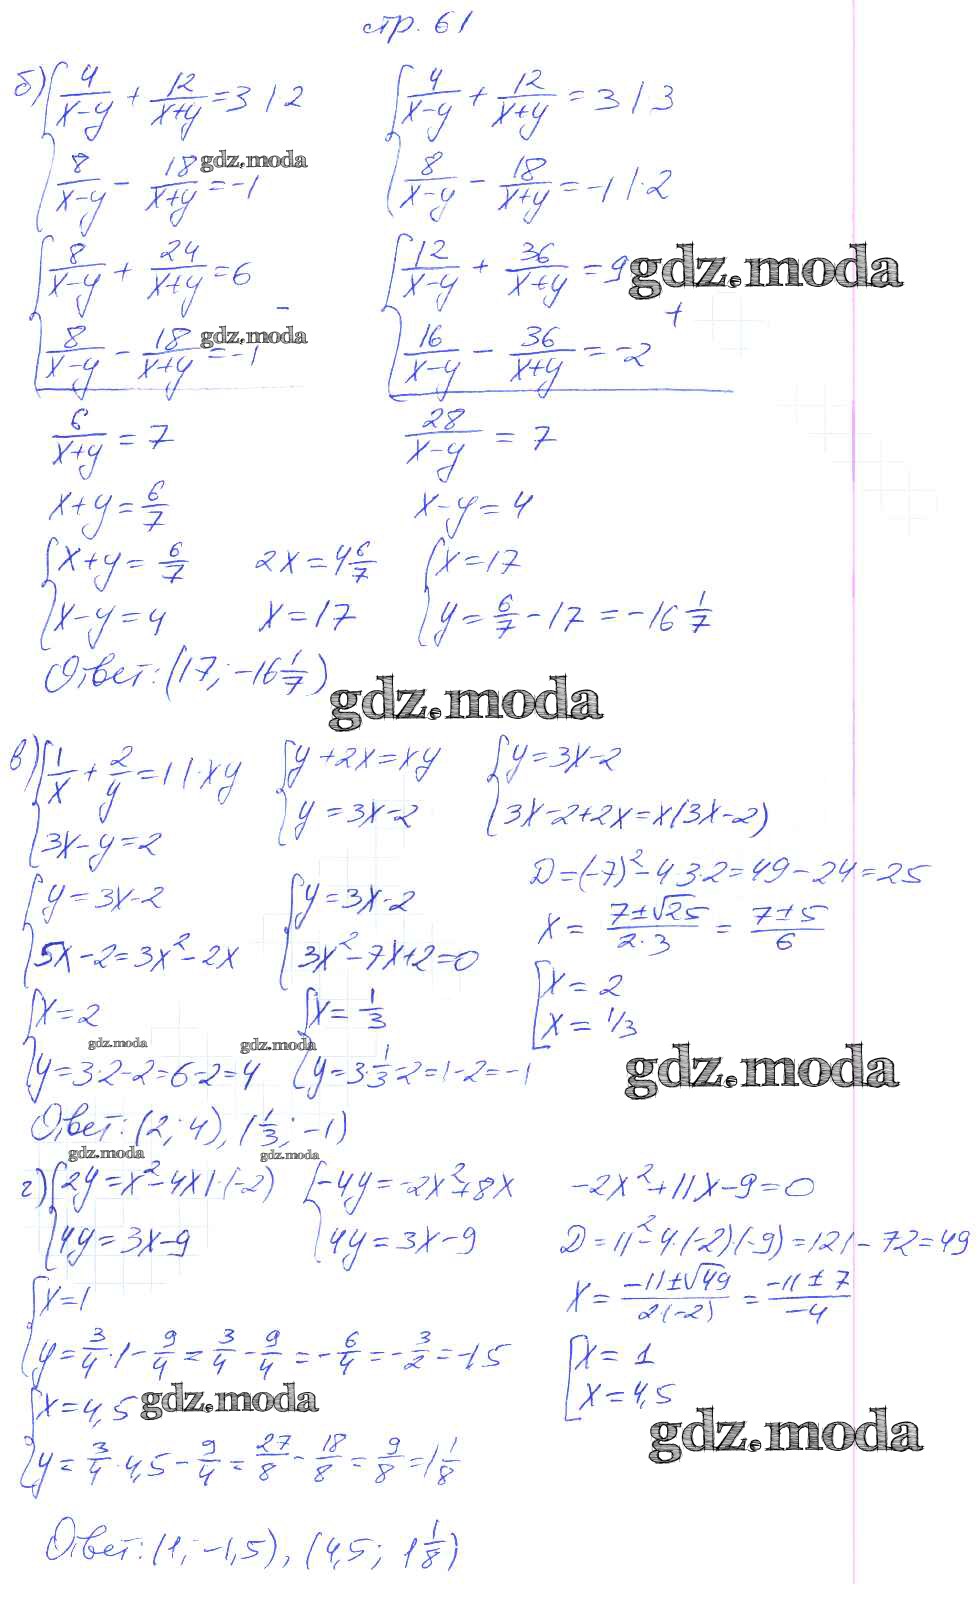 стр. 61
б) { 4/(x−y) + 12/(x+y) = 3 | 2
{ 8/(x−y) − 18/(x+y) = −1
gdz.moda
{ 4/(x−y) + 12/(x+y) = 3 | 3
{ 8/(x−y) − 18/(x+y) = −1 |·2
{ 8/(x−y) + 24/(x+y) = 6
−
{ 8/(x−y) − 18/(x+y) = −1
gdz.moda
{ 12/(x−y) + 36/(x+y) = 9
gdz.moda
+
{ 16/(x−y) − 36/(x+y) = −2
6/(x+y) = 7
28/(x−y) = 7
x+y = 6/7
x−y = 4
{ x+y = 6/7
{ x−y = 4
2x = 4 6/7
x = 17
{ x = 17
{ y = 6/7 − 17 = −16 1/7
Ответ: (17; −16 1/7)
gdz.moda
в) { 1/x + 2/y = 1 |·xy
{ 3x−y = 2
{ y+2x = xy
{ y = 3x−2
{ y = 3x−2
{ 3x−2+2x = x(3x−2)
{ y = 3x−2
{ 5x−2 = 3x²−2x
{ y = 3x−2
{ 3x²−7x+2 = 0
D = (−7)²−4·3·2 = 49−24 = 25
x = (7±√25)/(2·3) = (7±5)/6
[ x = 2
[ x = 1/3
{ x = 2
{ y = 3·2−2 = 6−2 = 4
gdz.moda
{ x = 1/3
{ y = 3·1/3−2 = 1−2 = −1
gdz.moda
gdz.moda
Ответ: (2; 4), (1/3; −1)
gdz.moda
gdz.moda
г) { 2y = x²−4x |·(−2)
{ 4y = 3x−9
{ −4y = −2x²+8x
{ 4y = 3x−9
−2x²+11x−9 = 0
D = 11²−4·(−2)(−9) = 121−72 = 49
x = (−11±√49)/(2·(−2)) = (−11±7)/(−4)
[ x = 1
[ x = 4,5
{ x = 1
{ y = 3/4·1 − 9/4 = 3/4 − 9/4 = −6/4 = −3/2 = −1,5
{ x = 4,5
gdz.moda
{ y = 3/4·4,5 − 9/4 = 27/8 − 18/8 = 9/8 = 1 1/8
gdz.moda
Ответ: (1; −1,5), (4,5; 1 1/8)